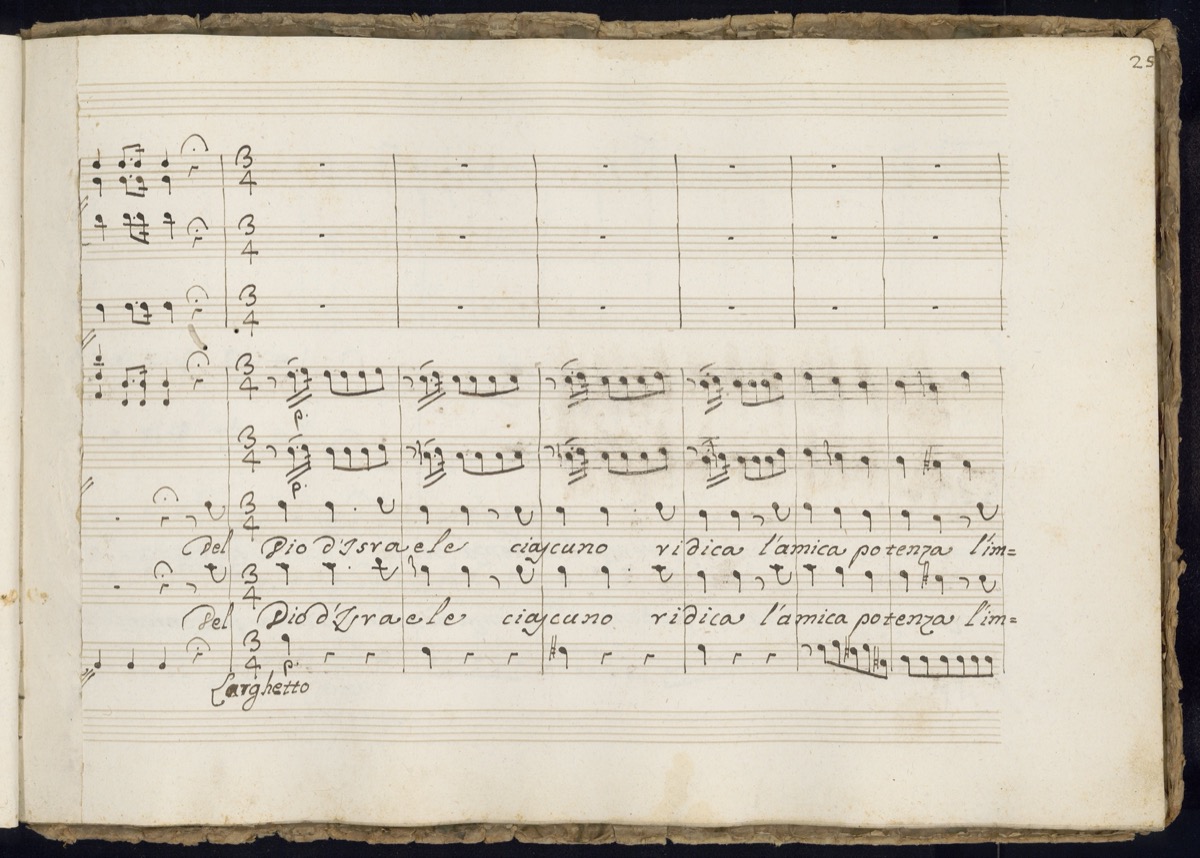 25
3 4
3 4
3 4
3 4
p.
3 4
p.
3 4
Del Dio d'Israele ciascuno ridica l'amica potenza l'im=
3 4
Del Dio d'Israele ciascuno ridica l'amica potenza l'im=
3 4
p.
Larghetto